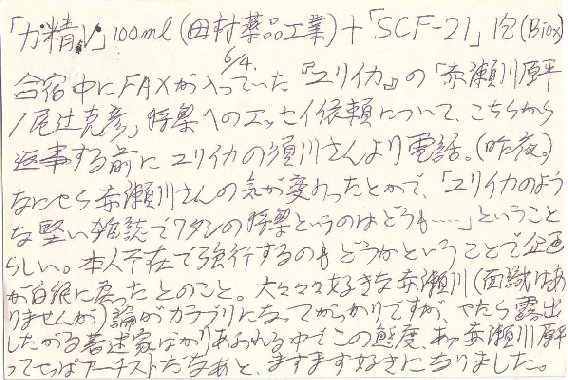 「力精」100ml(田村薬品工業)+「SCF-21」1包(Biox)
6/4.
合宿中にFAXが入っていた『ユリイカ』の「赤瀬川原平
/尾辻克彦」特集へのエッセイ依頼について、こちらから
返事する前にユリイカの須川さんより電話。(昨夜。)
なにせら赤瀬川さんの気が変わったとかで、「ユリイカのよう
な堅い雑誌でワタシの特集というのはどうも……」ということ
らしい。本人不在で強行するのもどうかということで企画
が白紙に戻ったとのこと。大々々々好きな赤瀬川(面識はあ
りませんが)論がカラブリになってがっかりですが、やたら露出
したがる著述家ばかりあふれる中でこの態度、あゝ赤瀬川原平
ってやっぱアーチストだなあと、ますます好きになりました。